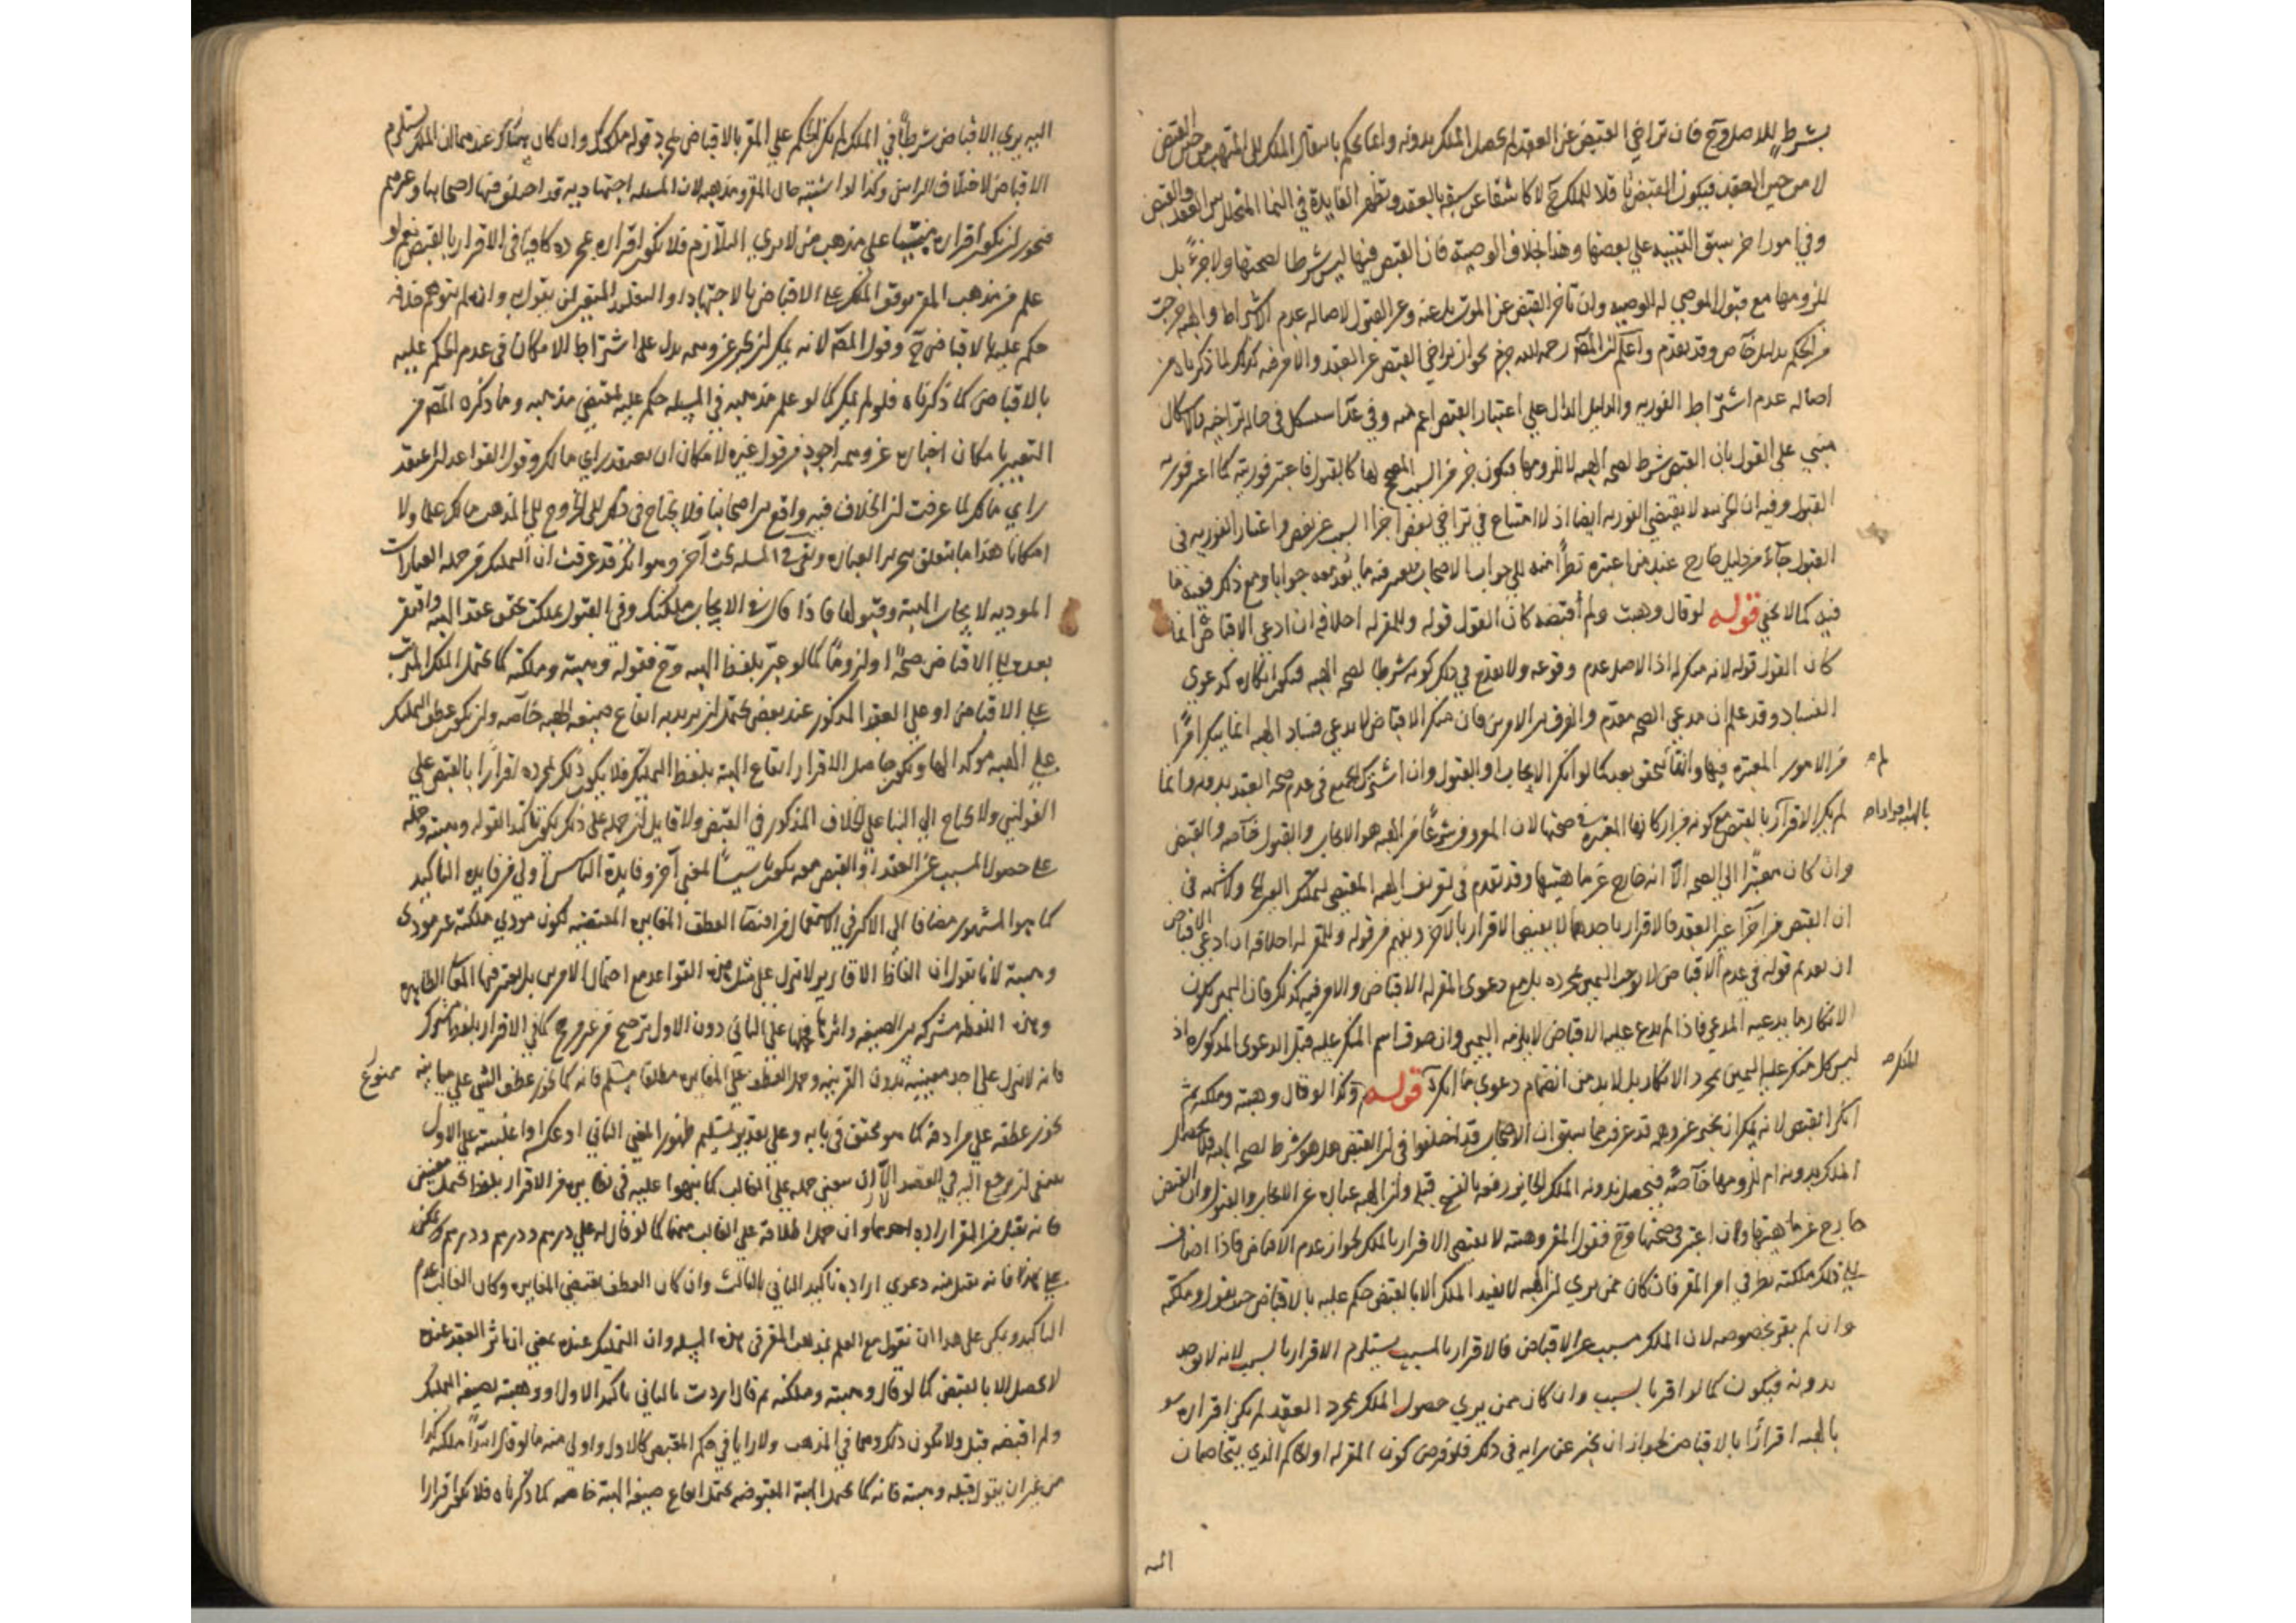 بشرط للاصل وح فان تراخي القبض عن العقد لم يحصل الملك بدونه وانما يحكم بانتقال الملك الى المتهب من حين القبض
لا من حين العقد فيكون القبض ناقلا للملك ح لا كاشفا عن سبقه بالعقد وتظهر الفايدة في النما المتخلل بين العقد والقبض
وفي امور اخر سبق التنبيه على بعضها وهذا بخلاف الوصية فان القبض فيها ليس شرطا لصحتها ولا جزء بل
للزومها مع قبول الموصي له الوصيه وان تاخر القبض عن الموت بل عنه وعن القبول لاصاله عدم الاشتراط والهبه خرجت
من الحكم بدليل خاص وقد تقدم واعلم ان المصَ رحمه الله جزم بجواز تراخي القبض عن العقد والامر فيه كذلك لما ذكرناه من
اصاله عدم اشتراط الفوريه والدليل الدال على اعتبار القبض اعم منه وفي عد استشكل في حاله تراخيه والاشكال
مبني على القول بان القبض شرط لصحه الهبه لا للزومها فيكون جزء من السبب المصحح لها كالقبول فاعتبر فوريته كما اعتبر فوريه
القبول وفيه ان الجزئيه لا يقتضي الفوريه ايضا اذ لا امتناع في تراخي بعض اجزا السبب عن بعض واعتبار الفوريه في
القبول جاء من دليل خارج عند من اعتبره نظرا منه الى جواب الاصحاب فيعتبر فيه ما يُعد معه جوابا ومع ذلك ففيه ما
فيه كما لا يخفى قوله لو قال وهبت ولم اُقبضه كان القول قوله وللمقر له احلافه ان ادعى الاقباض انما
كان القول قوله لانه منكر له اذ الاصل عدم وقوعه ولا يقدح في ذلك كونه شرطا لصحه الهبه فيكون انكاره كدعوى
الفساد وقد علم ان مدعي الصحه مقدم والفرق بين الامرين فان منكر الاقباض لا يدعي فساد الهبه انما ينكر امرًا
من الامور المعتبره فيها وانها لم تتحقق بعد كما لو انكر الايجاب او القبول وان اشترك الجميع في عدم صحه العقد بدونه وانما
لم يكن الاقرار بالقبض مع كونه من اركانها المعتبره في صحتها لان المعروف شرعًا من الهبه هو الايجاب والقبول خاصه والقبض
وان كان معتبرًا في الصحه الا انه خارج عن ماهيتها وقد تقدم في تعريف الهبه المقتضي لتمليك العين ولا شبهه في
ان القبض امر آخر غير العقد فالاقرار باحدهما لا يقتضي الاقرار بالآخر ويفهم من قوله وللمقر له احلافه ان ادعى الاقباض
ان تقديم قوله في عدم الاقباض لا يوجب اليمين بمجرده بل مع دعوى المقر له الاقباض والامر فيه كذلك فان اليمين يكون
لانكار ما يدعيه المدعي فاذا لم يدع عليه الاقباض لا يلزمه اليمين وان صدق اسم المنكر عليه قبل الدعوى المذكوره اذ
ليس كل منكر عليه اليمين بمجرد الانكار بل لا بد من انضمام دعوى ما انكره قوله وكذا لو قال وهبته وملكته ثم
انكر القبض لانه يمكن ان يخبر عن وهمه قد عرف مما سبق ان الاصحاب قد اختلفوا في ان القبض هل هو شرط لصحه الهبه فلا يحصل
الملك بدونه ام للزومها خاصه فيحصل بدونه الملك الجايز رفعه بالفسخ قبله وان الهبه عباره عن الايجاب والقبول وان القبض
خارج عن ماهيتها وان اعتبر في صحتها وح فقول المقر وهبته لا يقتضي الاقرار بالملك لجواز عدم الاقباض فاذا اضاف
الى ذلك ملكته نظر في امر المقر فان كان ممن يرى ان الهبه لا تفيد الملك الا بالقبض حكم عليه بالاقباض حيث يقول وملكته
وان لم يقر بخصوصه لان الملك مسبب عن الاقباض فالاقرار بالمسبب يستلزم الاقرار بالسبب لانه لا يوجد
بدونه فيكون كما لو اقر بالسبب وان كان ممن يرى حصول الملك بمجرد العقد لم يكن اقراره
بالهبه اقرارًا بالاقباض لجواز ان يخبر عن رايه في ذلك فلو فرض كون المقر له او الحاكم الذي يتخاصمان
اليه
اليه يرى الاقباض شرطًا في الملك لم يكن الحكم على المقر بالاقباض بمجرد قوله ملكتك وان كان عندهما ان الملك يستلزم
الاقباض لاختلاف الرايين وكذا لو اشتبه حال المقر ومذهبه لان المسئله اجتهاديه قد اختلف فيها اصحابنا وغيرهم
فيجوز ان يكون اقراره مبنيًا على مذهب من لا يرى التلازم فلا يكون اقراره بمجرده كافيا في الاقرار بالقبض نعم لو
علم من مذهب المقر توقف الملك على الاقباض بالاجتهاد او التقليد المعتبر لمن يقول به وان لم يتوهم خلافه
حكم عليه بالاقباض ح وقول المصَ لانه يمكن ان يخبر عن وهمه يدل على اشتراط الامكان في عدم الحكم عليه
بالاقباض كما ذكرناه فلو لم يمكن كما لو علم مذهبه في المسئله حكم عليه بمقتضى مذهبه وما ذكره المصَ من
التعبير بامكان اخباره عن وهمه اجود من قول غيره لامكان ان يعتقد راي مالك وقول القواعد ان اعتقد
راي مالك لما عرفت ان الخلاف فيه واقع بين اصحابنا فلا يحتاج في ذلك الى الخروج الى المذهب مالك علما ولا
امكانا هذا ما يتعلق بتحرير العباره وبقي في المسئله بحث آخر وهو انك قد عرفت ان التمليك من جمله العبارات
المودیه لايجاب الهبة وقبولها فاذا قال في الايجاب ملكتك وفي القبول تملكت تحقق عقد الهبه وافتقر
بعده الى الاقباض صحةً او لزومًا كما لو عبّر بلفظ الهبه وح فقوله وهبته وملكته كما يحتمل الملك المترتب
على الاقباض او على العقد المذكور عند بعض يحتمل ان يريد به ايقاع صيغه الهبه خاصه وان يكون عطف التمليك
على الهبه موكدا لها ويكون حاصل الاقرار ايقاع الهبة بلفظ التمليك فلا يكون ذلك بمجرده اقرارًا بالقبض على
القولين ولا يحتاج الى البنا على الخلاف المذكور في القبض ولا قايل ان حمله على ذلك يكون تاكيدا لقوله وهبته وحمله
على حصول المسبب عن العقد او القبض معه يكون تاسيسًا لمعنى آخر وفايدة التاسيس اولى من فايده التاكيد
كما هو المشهور مضافا الى الاكثر في الاستعمال واقتضا العطف المغايره المقتضيه لكون مودي ملكته غير مودى
وهبته لانا نقول ان الفاظ الاقارير لا تنزل على مثل هذه القواعد مع احتمال الامرين بل يعتبر فيها المعاني الظاهره
وهذه اللفظه مشتركه بين الصيغه واثرها فحملها على الثاني دون الاول ترجيح من غير مرجح كما في الاقرار بلفظ مشترك
فانه لا ينزل على احد معنييه بدون القرينه وحمل العطف على المغايره مطلقا مسلم فانه كما يجوز عطف الشي على مباينه ممنوع
يجوز عطفه على مرادفه كما هو محقق في بابه وعلى تقدير تسليم ظهور المعنى الثاني او عكسه او اغلبيته على الاول
ينبغي ان يرجع اليه في القصد الا ان يتعين حمله على الغالب كما نبهوا عليه في نظايره من الاقرار بلفظ يحتمل معنيين
فانه يقبل من المقر اراده احدهما وان حمل اطلاقه على الغالب منهما كما لو قال له علي درهم ودرهم ودرهم
فانه يقبل منه دعوى اراده تاكيد الثاني بالثالث وان كان العطف يقتضي المغايره وكان الغالب عدم
التاكيد ويمكن على هذا ان نقول مع العلم بمذهب المقر في هذه المسئله وان التمليك عنده بمعنى ان اثر العقد عنده
لا يحصل الا بالقبض كما لو قال وهبته وملكته ثم قال اردت بالثاني تاكيد الاول او وهبته بصيغه التمليك
ولم اقبضه قبل ولا يكون ذلك رجوعا في المذهب ولا رايا في حكم القبض كالاول واولى منه ما لو قال ابتدا ملكته كذا
من غير ان يقول قبله وهبته فانه كما يحتمل الهبة المقبوضه يحتمل ايقاع صيغه الهبة خاصه كما ذكرناه فلا يكون اقرارا